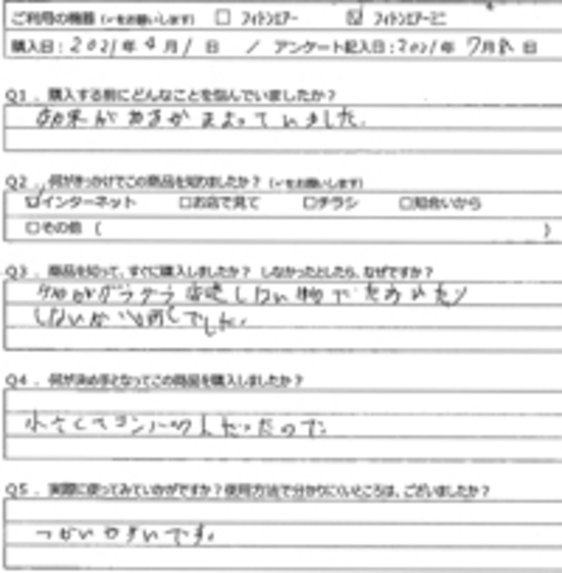 ご利用の機器（✓をお願いします） □ フィトンエアー ☑ フィトンエアーミニ
購入日：2021年4月1日 ／ アンケート記入日：2021年7月 日
Q1．購入する前にどんなことを悩んでいましたか？
効果があるかまよっていました。
Q2．何がきっかけでこの商品を知りましたか？（✓をお願いします）
☑インターネット □お店で見て □チラシ □知合いから
□その他（ ）
Q3．商品を知って、すぐに購入しましたか？ しなかったとしたら、なぜですか？
グラグラ しない物で たおれたり
しないか心配でした。
Q4．何が決め手となってこの商品を購入しましたか？
小さくてコンパクトだったので
Q5．実際に使ってみていかがですか？使用方法で分かりにくいところは、ございましたか？
つかいやすいです。